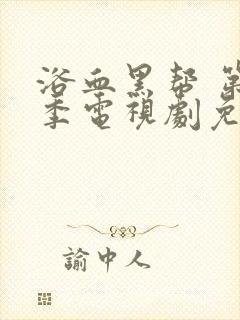 浴血黑帮 第
季電視劇免
諭中人